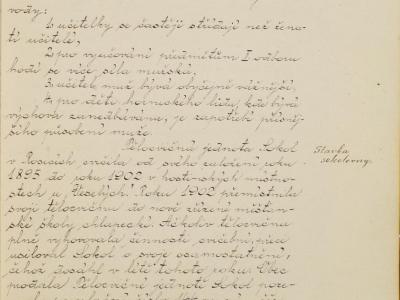 vody:
1. učitelky se častěji střídají než žena-
tí učitelé,
2. pro vyučování předmětům I. odboru
hodí se více síla mužská,
3. učitel muž bývá obyčejně vážnější,
4. pro děti hornického lidu, kde bývá
výchova zanedbávána, je zapotřebí přísněj-
šího působení muže.
Tělocvičná jednota Sokol
v Rosicích cvičila od svého založení roku
1895 do roku 1902 v hostinských místno-
stech u „Veselých“. Roku 1902 přemístnila
svoji tělocvičnu do nově zřízené měšťan-
ské školy chlapecké. Ačkoliv tělocvična
plně vyhovovala činnosti cvičební, přece
usiloval Sokol o svoje osamostatnění,
čehož dosáhl v létě tohoto roku. Obec
prodala Tělocvičné jednotě Sokol poze-
Stavba
sokolovny.